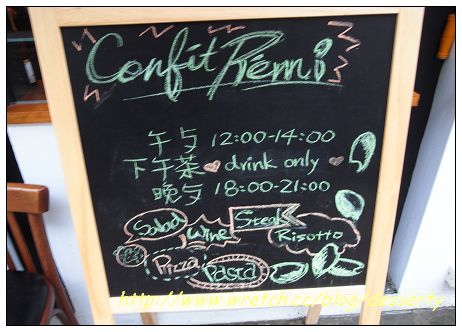 Confit Rémi
午ㄢ 12:00-14:00
下午茶 drink only
晚ㄢ 18:00-21:00
Salad Wine Steak Risotto
Pizza Pasta
http://www.wretch.cc/blog/desserty